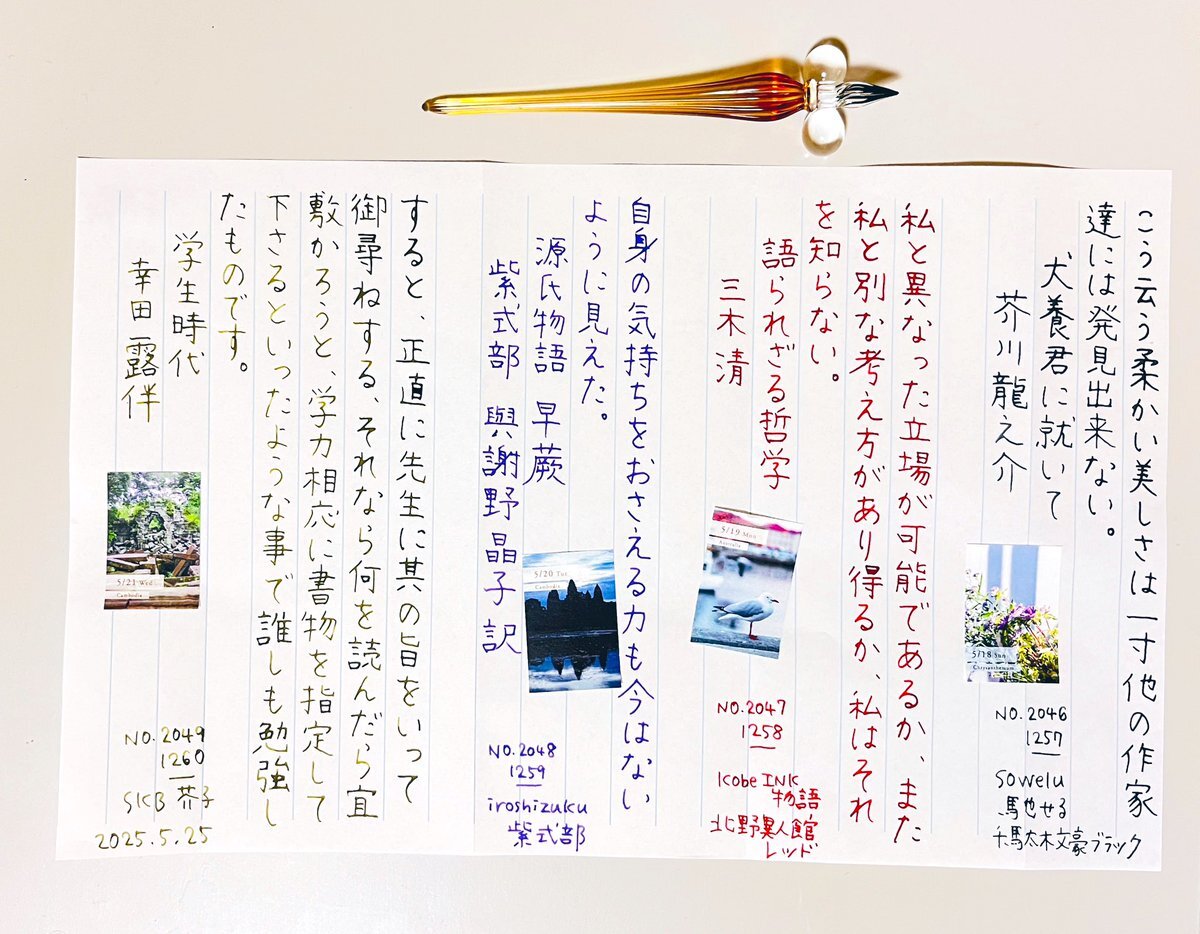 こう云う柔かい美しさは一寸他の作家
達には発見出来ない。
犬養君に就いて
芥川龍之介
5/18 Sun
Chrysanthemum
NO.2046
1257
Sowelu
馬也せる
千駄木文豪ブラック
私と異なった立場が可能であるか、また
私と別な考え方があり得るか、私はそれ
を知らない。
語られざる哲学
三木清
5/19 Mon
Australia
NO.2047
1258
Kobe INK
物語
北野異人館
レッド
自身の気持ちをおさえる力も今はない
ように見えた。
源氏物語 早蕨
紫式部 與謝野晶子訳
5/20 Tue
Cambodia
NO.2048
1259
iroshizuku
紫式部
すると、正直に先生に其の旨をいって
御尋ねする、それなら何を読んだら宜
敷かろうと、学力相応に書物を指定して
下さるといったような事で誰しも勉強し
たものです。
学生時代
幸田露伴
5/21 Wed
Cambodia
NO.2049
1260
SKB 芥子
2025.5.25